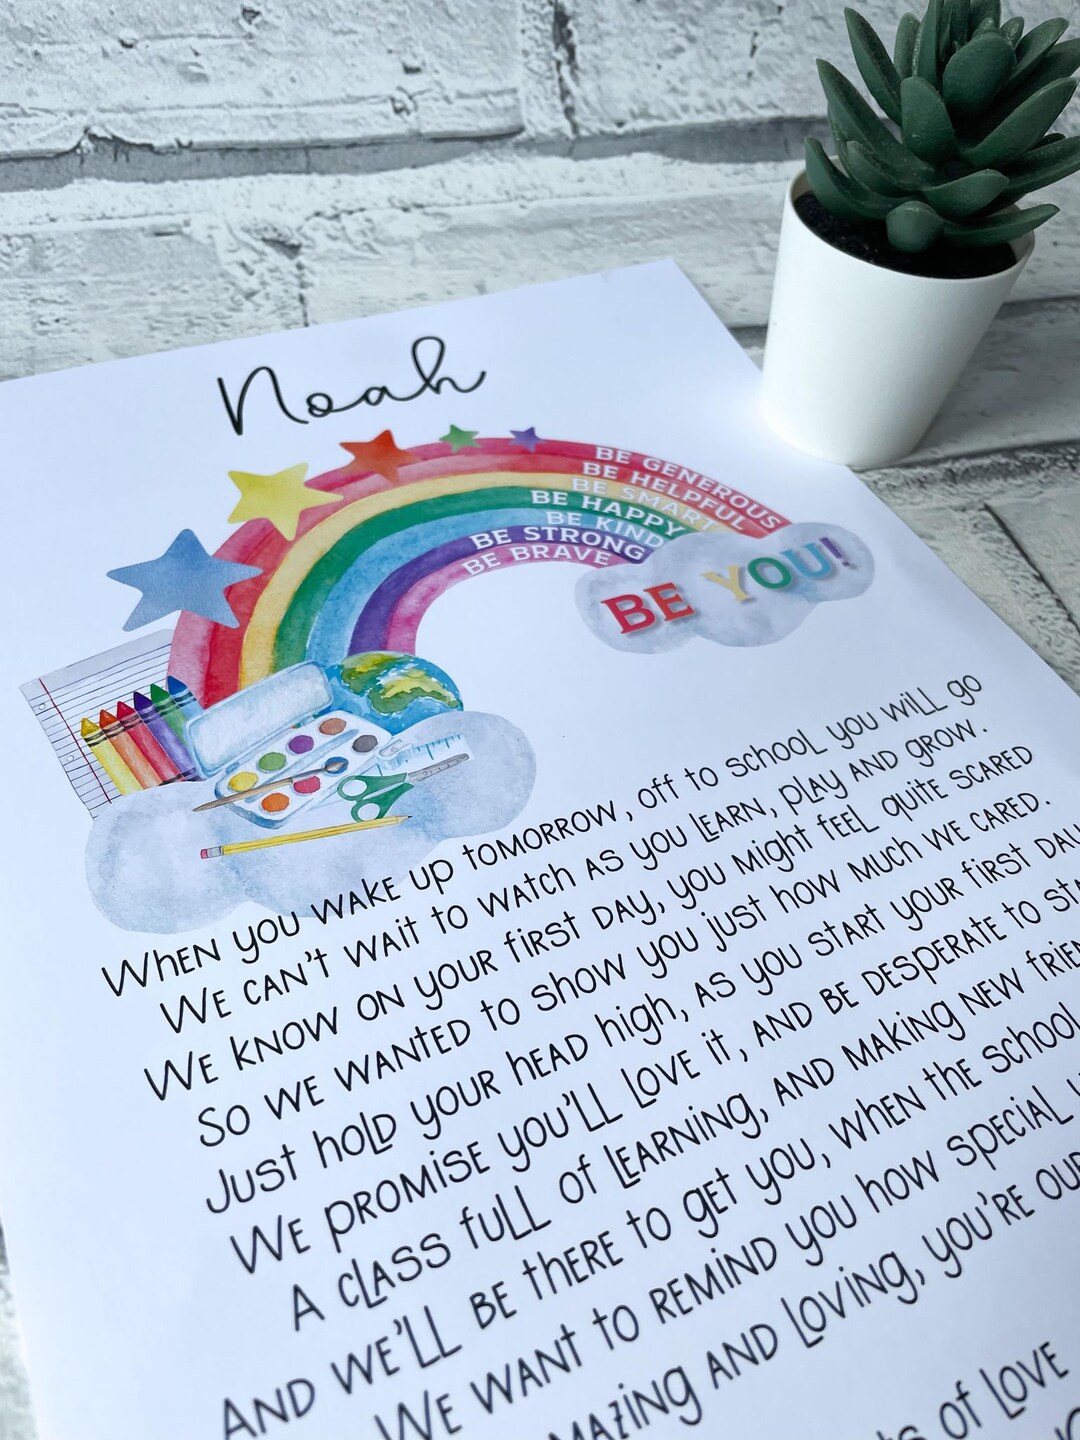 Noah
BE GENEROUS
BE HELPFUL
BE SMART
BE HAPPY
BE KIND
BE STRONG
BE BRAVE
BE YOU!
WHEN YOU WAKE UP TOMORROW, OFF TO SCHOOL YOU WILL GO
WE CAN'T WAIT TO WATCH AS YOU LEARN, PLAY AND GROW.
WE KNOW ON YOUR FIRST DAY, YOU MIGHT FEEL QUITE SCARED
SO WE WANTED TO SHOW YOU JUST HOW MUCH WE CARED.
JUST HOLD YOUR HEAD HIGH, AS YOU START YOUR FIRST DAY
WE PROMISE YOU'LL LOVE IT, AND BE DESPERATE TO
A CLASS FULL OF LEARNING, AND MAKING NEW
AND WE'LL BE THERE TO GET YOU, WHEN THE SCHOOL
WE WANT TO REMIND YOU HOW SPECIAL
AND LOVING, YOU'RE
OF LOVE